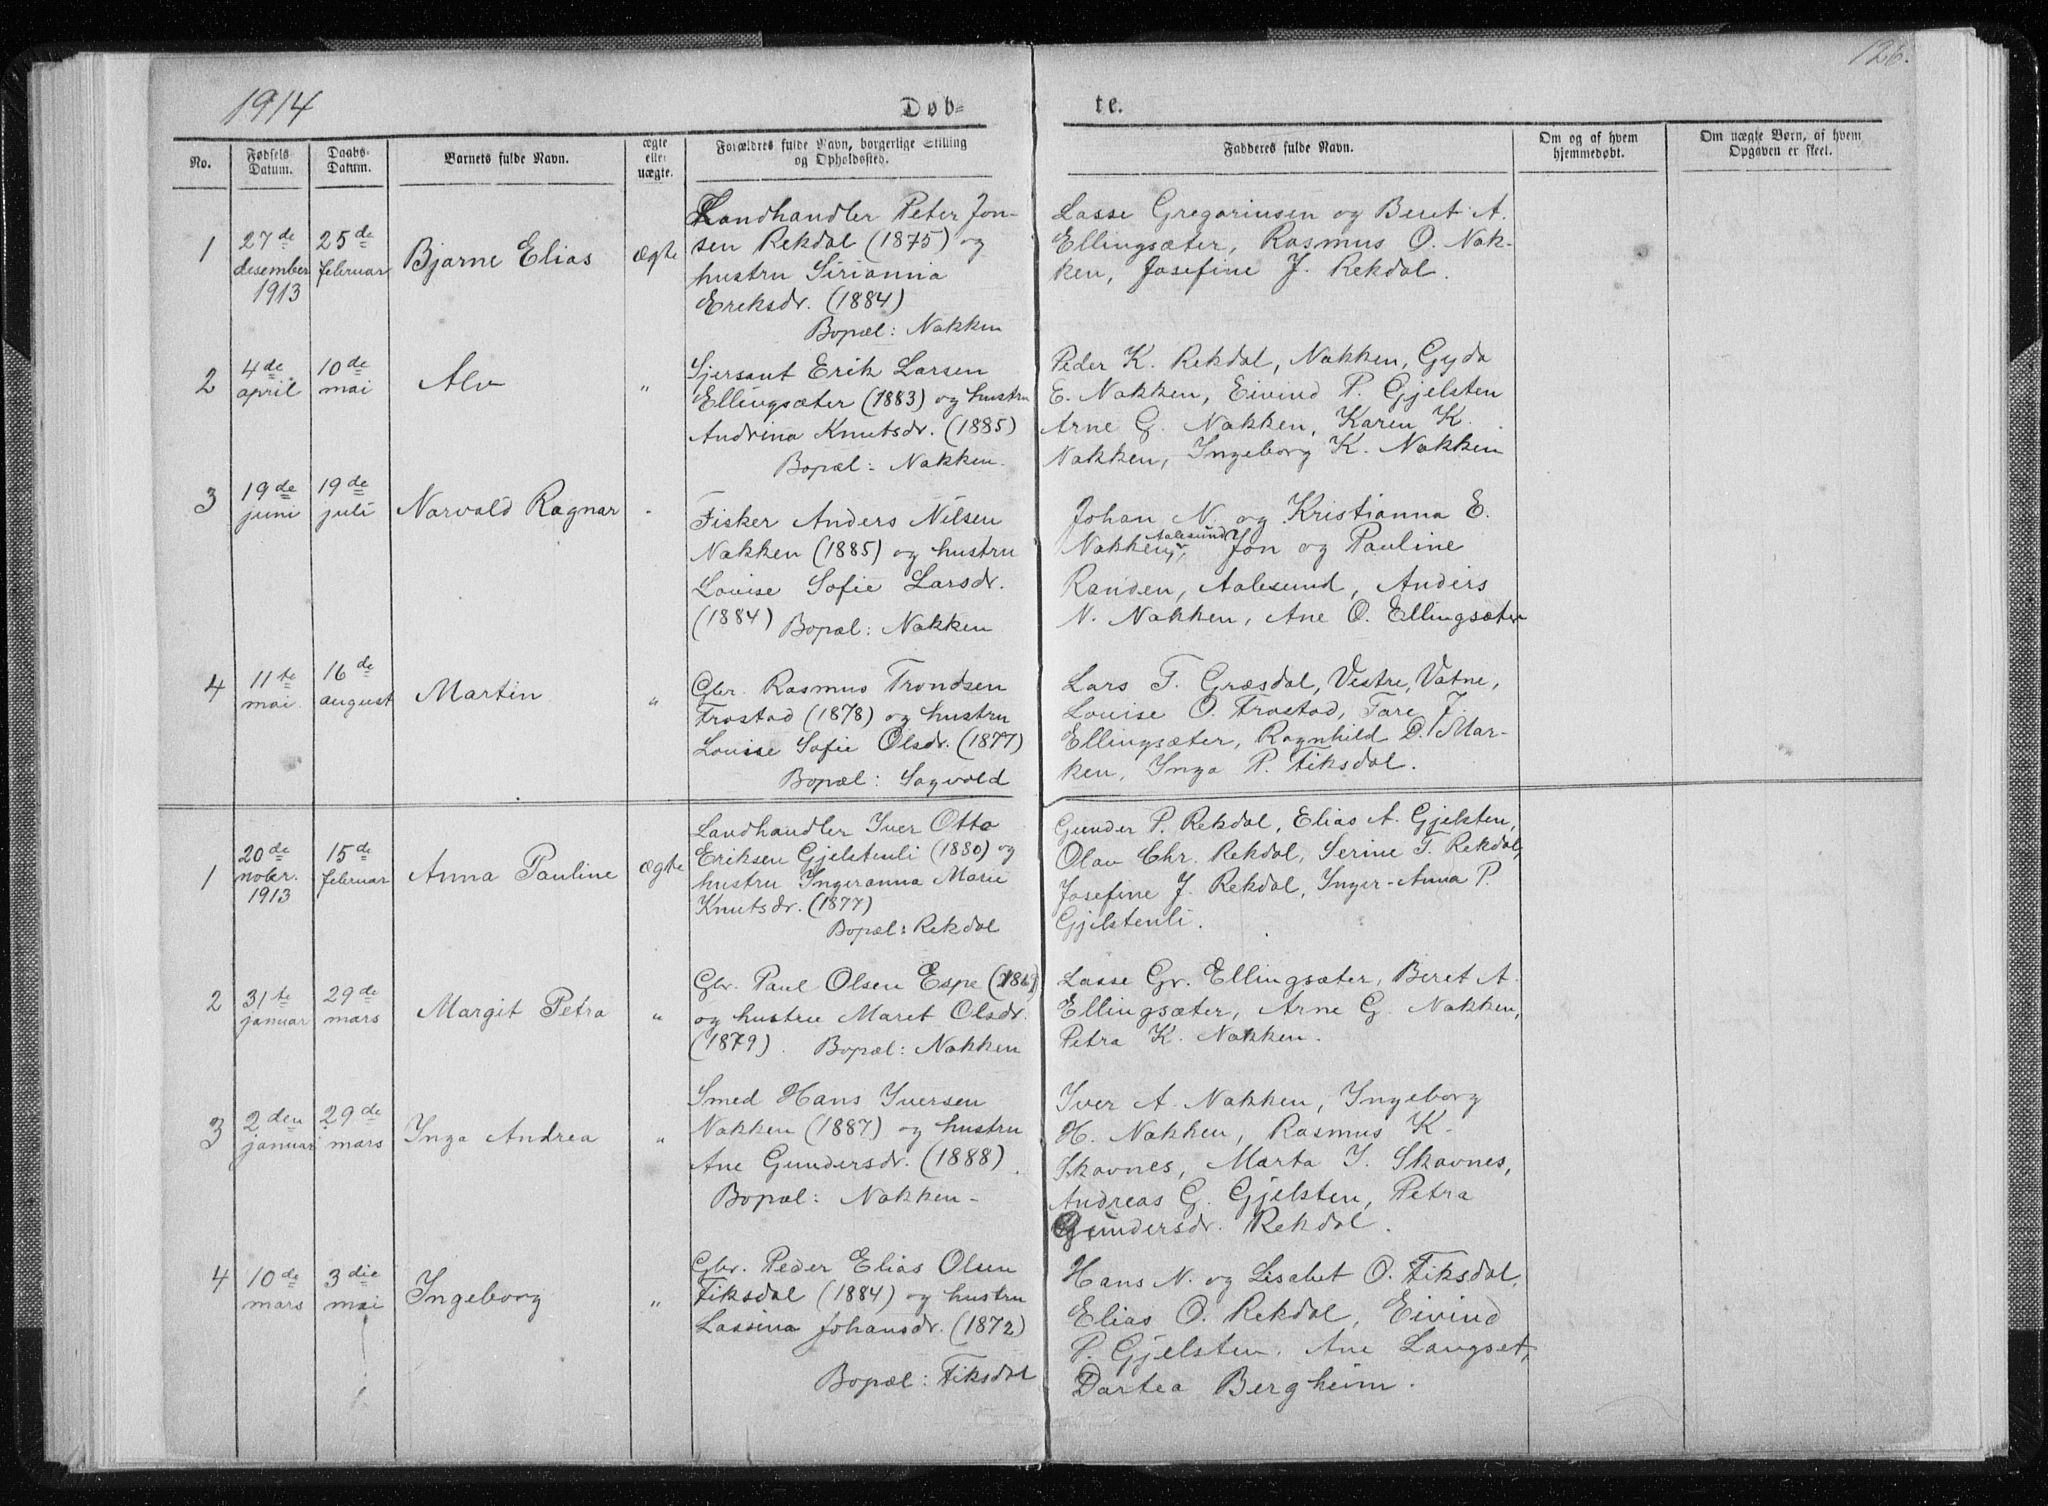 126.
1914
Døb-
te.
No.
Fødsels Datum.
Daabs- Datum.
Barnets fulde Navn.
ægte eller uægte.
Forældres fulde Navn, borgerlige Stilling og Opholdssted.
Fadderes fulde Navn.
Om og af hvem hjemmedøbt.
Om uægte Børn, af hvem Opgaven er skeet.
1
27de desember 1913
25de februar
Bjarne Elias
ægte
Landhandler Peter Jon-
sen Rekdal (1875) og
hustru Sirianna
Ereksdr. (1884)
Bopæl: Nakken
Lasse Gregoriusen og Beret A.
Ellingsæter, Rasmus O. Nak-
ken, Josefine J. Rekdal.
2
4de april
10de mai
Alv
"
Sjersant Erik Larsen
Ellingsæter (1883) og hustru
Andrina Knutsdr. (1885)
Bopæl: Nakken.
Peder K. Rekdal, Nakken, Gyda
E. Nakken, Eivind P. Gjelsten
Arne G. Nakken, Karen K.
Nakken, Ingeborg K. Nakken
3
19de juni
19de juli
Norvald Ragnar
"
Fisker Anders Nilsen
Nakken (1885) og hustru
Louise Sofie Larsdr.
(1884) Bopæl: Nakken
Johan N. og Kristianna E.
Nakken, Aalesund, Jon og Pauline
Randen, Aalesund, Anders
N. Nakken, Ane O. Ellingsæter
4
11te mai
16de august
Martin
"
Gbr. Rasmus Trondsen
Frostad (1878) og hustru
Louise Sofie Olsdr. (1877)
Bopæl: Sagvold
Lars T. Græsdal, Vestre, Vatne,
Louise O. Frostad, Tore J.
Ellingsæter, Ragnhild D. Mar-
ken, Inga P. Fiksdal.
1
20de nobr. 1913
15de februar
Anna Pauline
ægte
Landhandler Iver Otto
Eriksen Gjelstenli (1880) og
hustru Ingeranna Marie
Knutsdr. (1877)
Bopæl: Rekdal
Gunder P. Rekdal, Elias A. Gjelsten,
Olav Chr. Rekdal, Serine T. Rekdal,
Josefine J. Rekdal, Inger-Anna P.
Gjelstenli.
2
31te januar
29de mars
Margit Petra
"
Gbr. Paul Olsen Espe
og hustru Maret Olsdr.
(1879). Bopæl: Nakken
Lasse Gr. Ellingsæter, Beret A.
Ellingsæter, Arne G. Nakken,
Petra K. Nakken.
3
2den januar
29de mars
Inga Andrea
"
Smed Hans Iversen
Nakken (1887) og hustru
Ane Gundersdr. (1888)
Bopæl: Nakken-
Iver A. Nakken, Ingeborg
H. Nakken, Rasmus K.
Skavnes, Marta I. Skavnes,
Andreas G. Gjelsten, Petra
Gundersdr. Rekdal.
4
10de mars
3die mai
Ingeborg
"
Gbr. Peder Elias Olsen
Fiksdal (1884) og hustru
Lassina Johansdr. (1872)
Bopæl: Fiksdal
Hans N. og Lisabet O. Fiksdal,
Elias O. Rekdal, Eivind
P. Gjelsten, Ane Langset,
Dartea Bergheim.